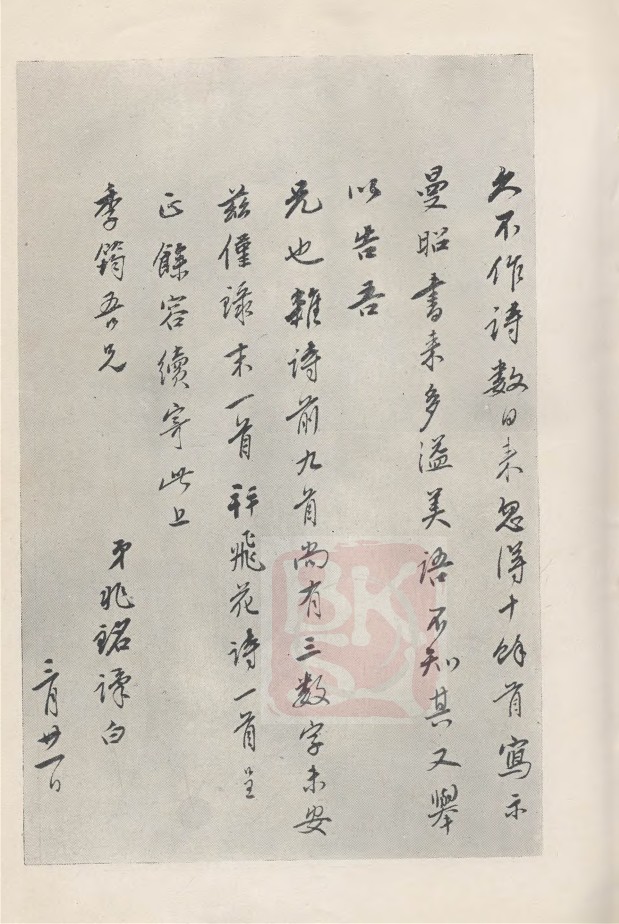 久不作詩數日来忽得十餘首寫示
曼昭書来多溢美語不知其又舉
以告吾
兄也雜詩前九首尚有三數字未安
茲僅録末一首并飛花詩一首呈
正餘容續寄此上
季筠吾兄
弟兆銘謹白
三月廿一日
BK